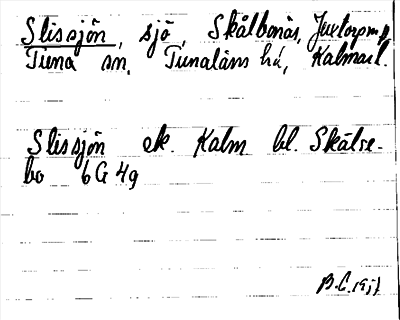 Slissjön, sjö, Skälbonäs,
Tuna sn. Tunaläns hd, Kalmar l.
Slissjön ek. Kalm bl. Skälse-
bo 6G 4g
B.C. 19